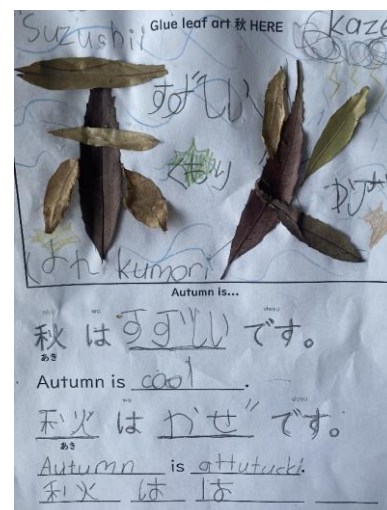 Suzushii Glue leaf art 秋 HERE kaze
すずしい
くもり
かぜ
kumori
Autumn is...
秋 は すずしい です。
あき
Autumn is cool.
秋 は かぜ です。
あき
Autumn is attutucki.
秋 は は